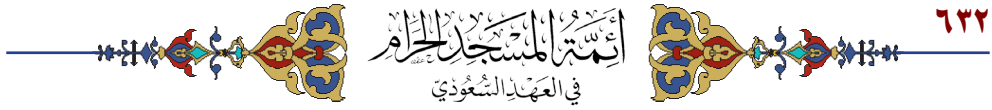 ٦٣٢
أَئِمَّةُ المَسْجِدِ الحَرَامِ
في العَهْدِ السُّعُودِيّ